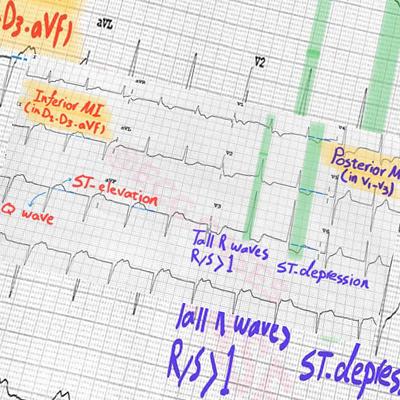 D3.aVf)
aVL
V2
Inferior MI
(in D2-D3-aVf)
aVL
V1
V2
Posterior M
(in V1-V3)
ST-elevation
Q wave
aVF
V3
Tall R waves
R/S>1
ST.depression
Tall R waves
R/S>1
ST.depres